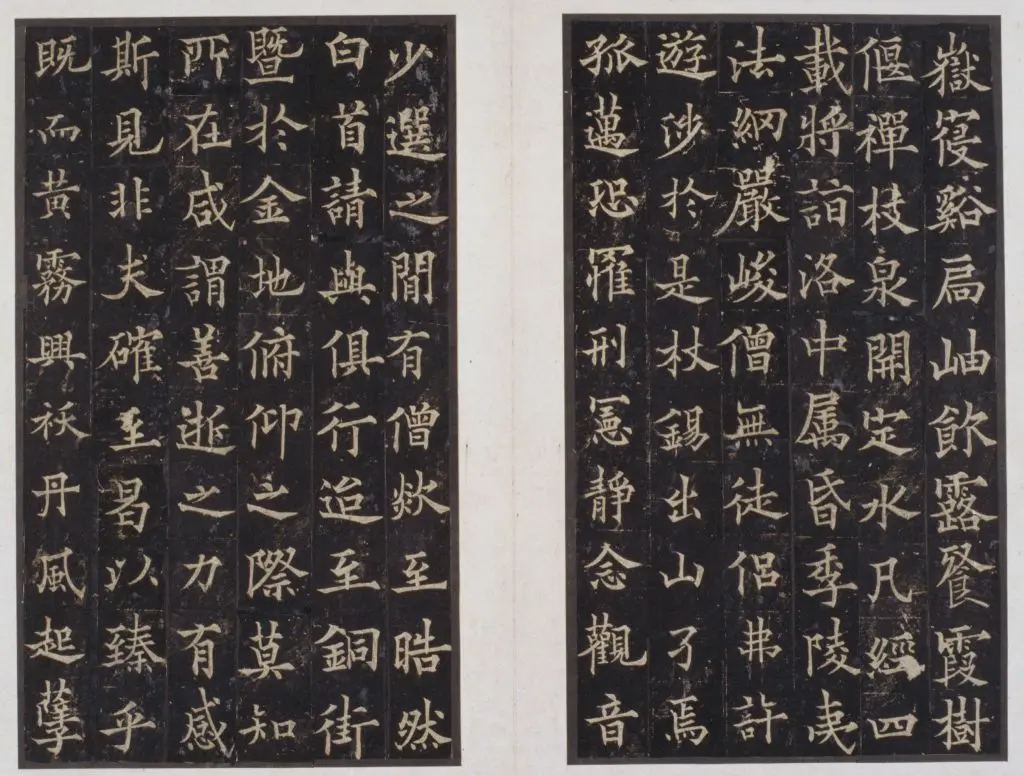 嶽寝谿扃岫飲露餐霞樹
偃禪枝泉開定水凡經四
載將詣洛中属昏季陵夷
法網嚴峻僧無徒侣弗許
遊涉於是杖錫出山孑焉
孤邁恐罹刑憲靜念觀音
少選之間有僧欻至晧然
白首請與俱行迨至銅街
暨於金地俯仰之際莫知
所在咸謂善逝之力有感
斯見非夫確至曷以臻乎
既而黃霧興祅丹風起孽